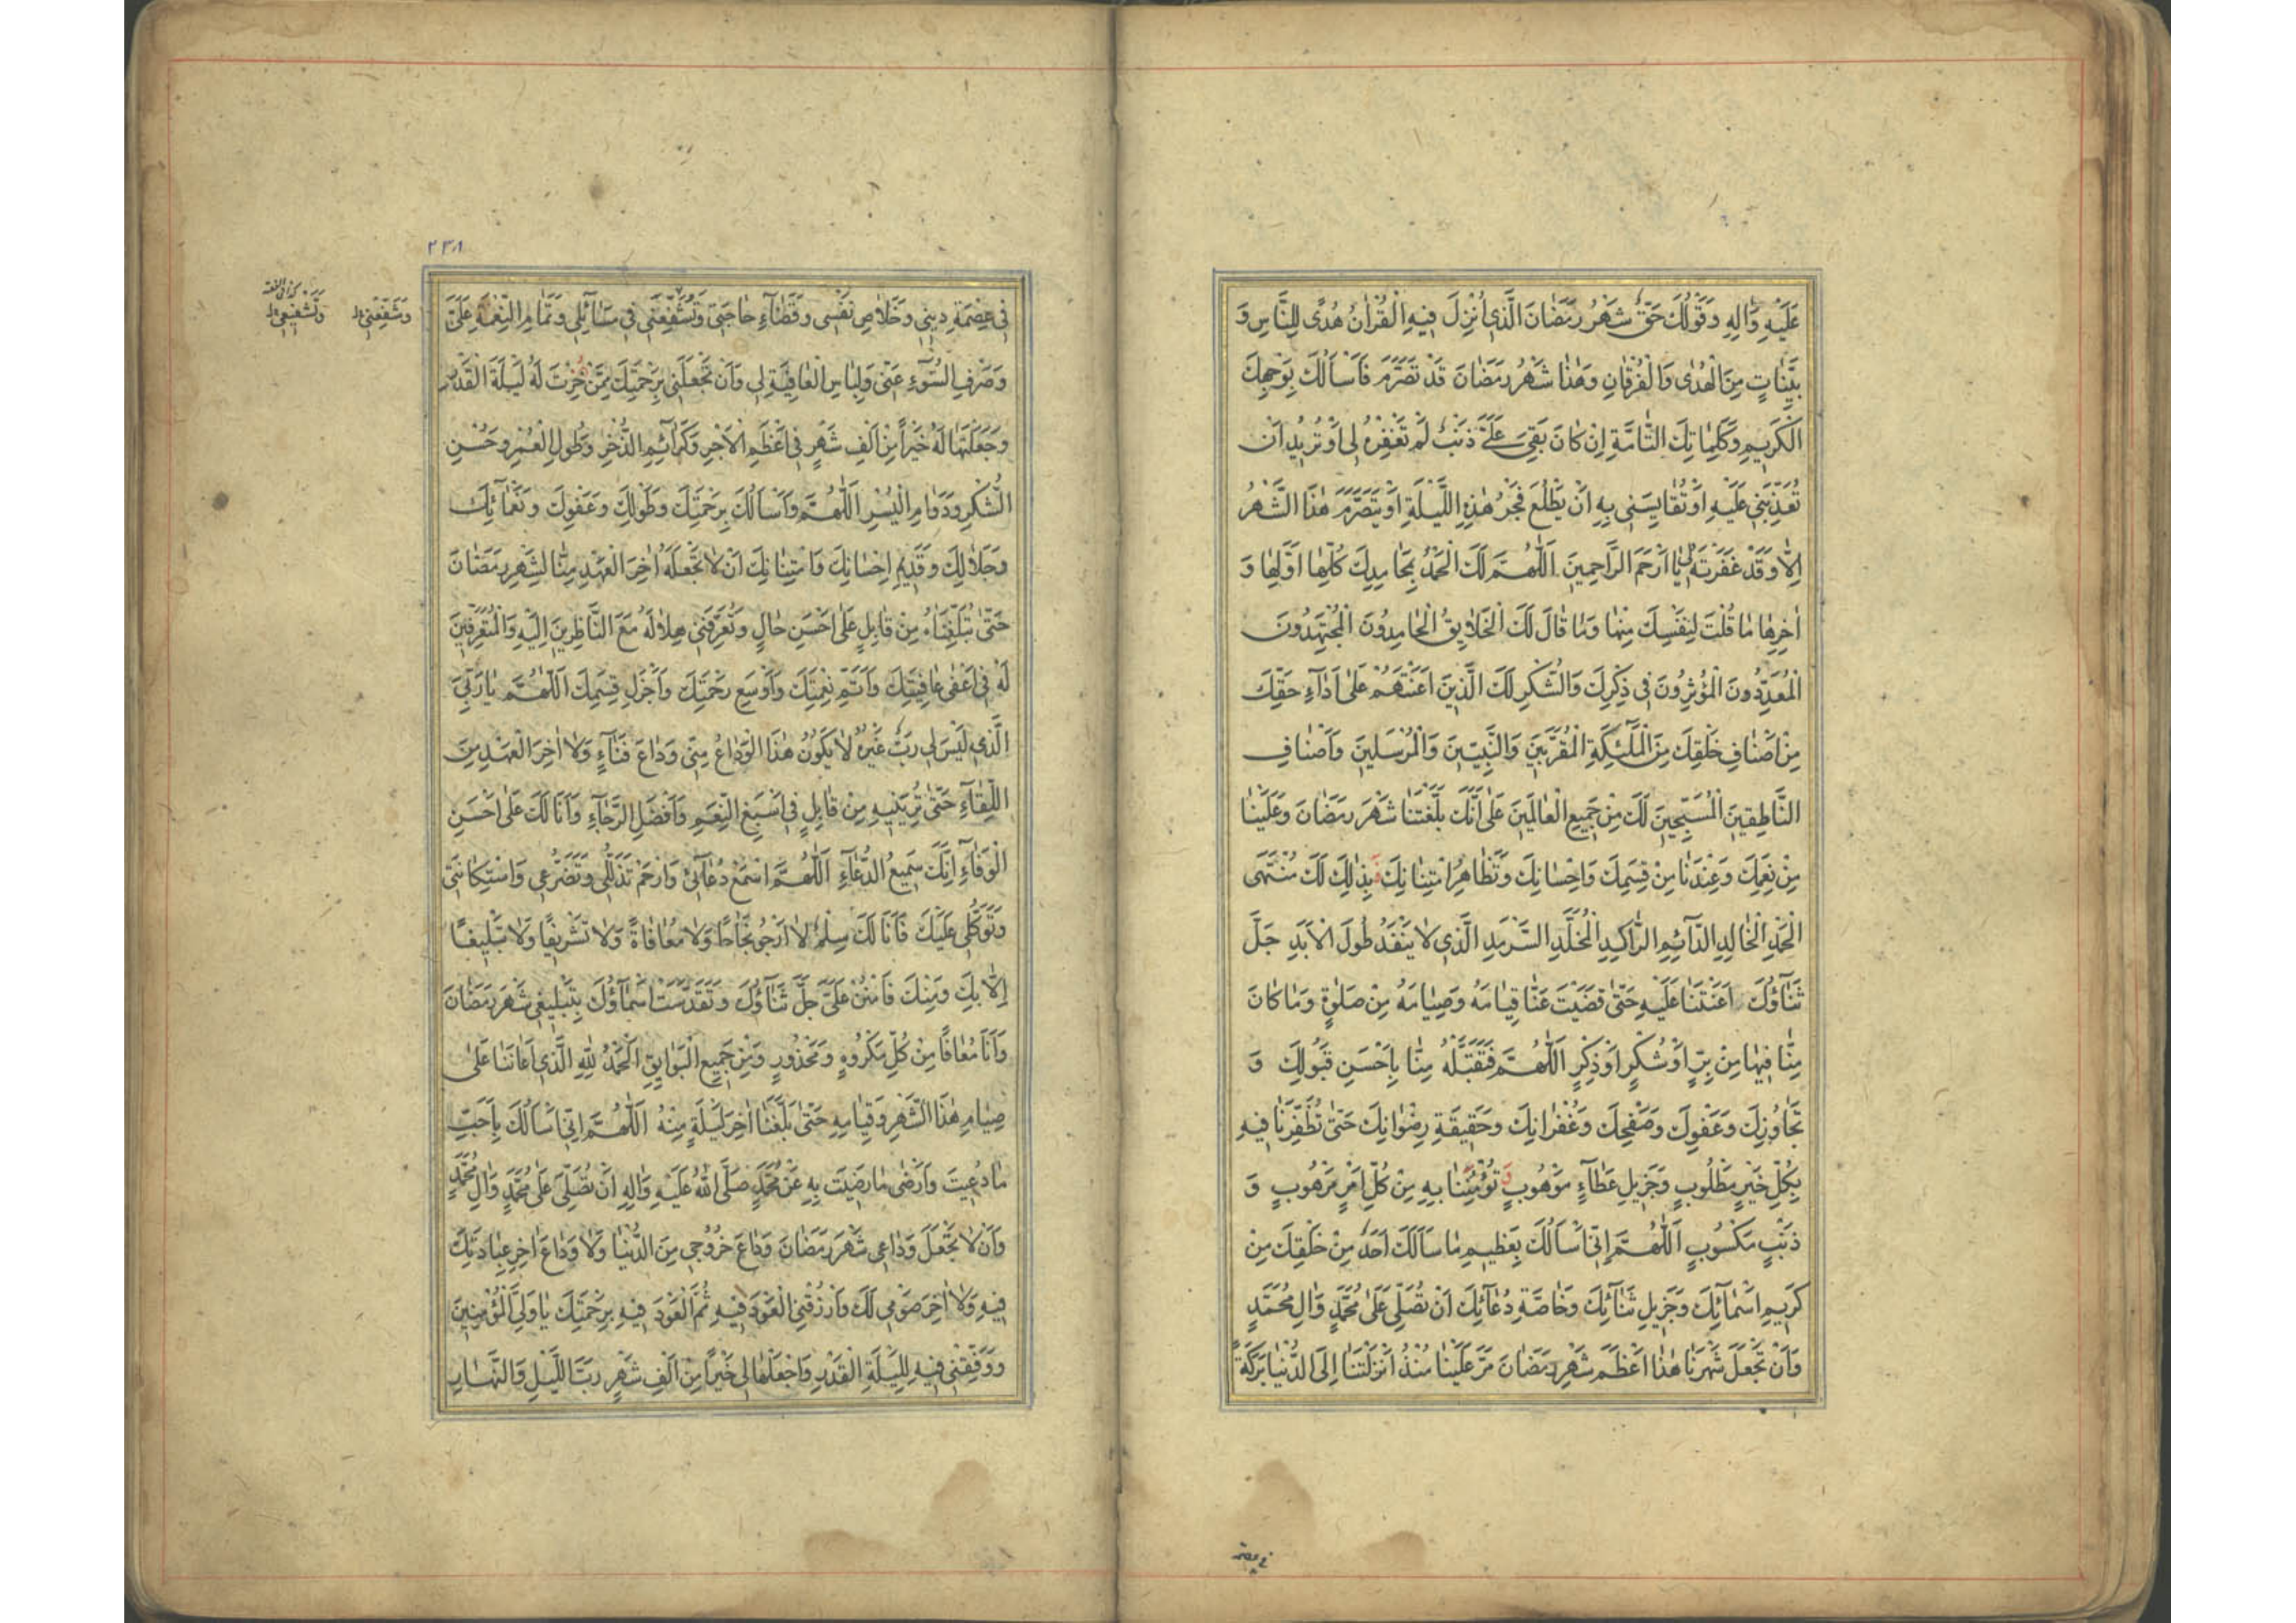 عَلَيْهِ وَاٰلِهِ وَقَوْلُكَ حَقٌّ شَهْرُ رَمَضَانَ الَّذِي اُنْزِلَ فِيهِ الْقُرْاٰنُ هُدًى لِلنَّاسِ وَ
بَيِّنَاتٍ مِنَ الْهُدٰى وَالْفُرْقَانِ وَهٰذَا شَهْرُ رَمَضَانَ قَدْ تَصَرَّمَ فَاَسْاَلُكَ بِوَجْهِكَ
الْكَرِيمِ وَكَلِمَاتِكَ التَّامَّةِ اِنْ كَانَ بَقِيَ عَلَيَّ ذَنْبٌ لَمْ تَغْفِرْهُ لِي اَوْ تُرِيدُ اَنْ
تُعَذِّبَنِي عَلَيْهِ اَوْ تُقَايِسَنِي بِهِ اَنْ يَطْلُعَ فَجْرُ هٰذِهِ اللَّيْلَةِ اَوْ يَتَصَرَّمَ هٰذَا الشَّهْرُ
اِلَّا وَقَدْ غَفَرْتَهُ لِي يَا اَرْحَمَ الرَّاحِمِينَ اَللّٰهُمَّ لَكَ الْحَمْدُ بِمَحَامِدِكَ كُلِّهَا اَوَّلِهَا وَ
اٰخِرِهَا مَا قُلْتَ لِنَفْسِكَ مِنْهَا وَمَا قَالَ لَكَ الْخَلَايِقُ الْحَامِدُونَ الْمُجْتَهِدُونَ
الْمُعَدِّدُونَ الْمُؤْثِرُونَ فِي ذِكْرِكَ وَالشُّكْرِ لَكَ الَّذِينَ اَعَنْتَهُمْ عَلٰى اَدَاۤءِ حَقِّكَ
مِنْ اَصْنَافِ خَلْقِكَ مِنَ الْمَلٰۤئِكَةِ الْمُقَرَّبِينَ وَالنَّبِيِّينَ وَالْمُرْسَلِينَ وَاَصْنَافِ
النَّاطِقِينَ الْمُسَبِّحِينَ لَكَ مِنْ جَمِيعِ الْعَالَمِينَ عَلٰى اَنَّكَ بَلَّغْتَنَا شَهْرَ رَمَضَانَ وَعَلَيْنَا
مِنْ نِعَمِكَ وَعِنْدَنَا مِنْ قِسَمِكَ وَاِحْسَانِكَ وَتَظَاهُرِ امْتِنَانِكَ فَبِذٰلِكَ لَكَ مُنْتَهَى
الْحَمْدِ الْخَالِدِ الدَّاۤئِمِ الرَّاكِدِ الْمُخَلَّدِ السَّرْمَدِ الَّذِي لَا يَنْفَدُ طُولَ الْاَبَدِ جَلَّ
ثَنَاۤؤُكَ اَعَنْتَنَا عَلَيْهِ حَتّٰى قَضَيْتَ عَنَّا قِيَامَهُ وَصِيَامَهُ مِنْ صَلٰوةٍ وَمَا كَانَ
مِنَّا فِيهَا مِنْ بِرٍّ اَوْ شُكْرٍ اَوْ ذِكْرٍ اَللّٰهُمَّ فَتَقَبَّلْهُ مِنَّا بِاَحْسَنِ قَبُولِكَ وَ
تَجَاوُزِكَ وَعَفْوِكَ وَصَفْحِكَ وَغُفْرَانِكَ وَحَقِيقَةِ رِضْوَانِكَ حَتّٰى تُظَفِّرَنَا فِيهِ
بِكُلِّ خَيْرٍ مَطْلُوبٍ وَجَزِيلِ عَطَاۤءٍ مَوْهُوبٍ وَ تُؤْمِنَنَا بِهِ مِنْ كُلِّ اَمْرٍ مَرْهُوبٍ وَ
ذَنْبٍ مَكْسُوبٍ اَللّٰهُمَّ اِنِّي اَسْاَلُكَ بِعَظِيمِ مَا سَاَلَكَ اَحَدٌ مِنْ خَلْقِكَ مِنْ
كَرِيمِ اَسْمَاۤئِكَ وَجَزِيلِ ثَنَاۤئِكَ وَخَاصَّةِ دُعَاۤئِكَ اَنْ تُصَلِّيَ عَلٰى مُحَمَّدٍ وَاٰلِ مُحَمَّدٍ
وَاَنْ تَجْعَلَ شَهْرَنَا هٰذَا اَعْظَمَ شَهْرِ رَمَضَانَ مَرَّ عَلَيْنَا مُنْذُ اَنْزَلْتَنَا اِلَى الدُّنْيَا بَرَكَةً
في عصمة
٢٣٨
فِي عِصْمَةِ دِينِي وَخَلَاصِ نَفْسِي وَقَضَاۤءِ حَاجَتِي وَتُشَفِّعَنِي فِي مَسَاۤئِلِي وَتَمَامِ النِّعْمَةِ عَلَيَّ
وَتُشَفِّعَنِي
وَصَرْفِ السُّوۤءِ عَنِّي وَلِبَاسِ الْعَافِيَةِ لِي وَاَنْ تَجْعَلَنِي بِرَحْمَتِكَ مِمَّنْ خِرْتَ لَهُ لَيْلَةَ الْقَدْرِ
وَجَعَلْتَهَا لَهُ خَيْراً مِنْ اَلْفِ شَهْرٍ فِي اَعْظَمِ الْاَجْرِ وَكَرَاۤئِمِ الذُّخْرِ وَطُولِ الْعُمْرِ وَحُسْنِ
الشُّكْرِ وَدَوَامِ الْيُسْرِ اَللّٰهُمَّ وَاَسْاَلُكَ بِرَحْمَتِكَ وَطَوْلِكَ وَعَفْوِكَ وَنَعْمَاۤئِكَ
وَجَلَالِكَ وَقَدِيمِ اِحْسَانِكَ وَامْتِنَانِكَ اَنْ لَا تَجْعَلَهُ اٰخِرَ الْعَهْدِ مِنَّا لِشَهْرِ رَمَضَانَ
حَتّٰى تُبَلِّغَنَاهُ مِنْ قَابِلٍ عَلٰى اَحْسَنِ حَالٍ وَتُعَرِّفَنِي هِلَالَهُ مَعَ النَّاظِرِينَ اِلَيْهِ وَالْمُتَعَرِّفِينَ
لَهُ فِي اَعْفٰى عَافِيَتِكَ وَاَتَمِّ نِعْمَتِكَ وَاَوْسَعِ رَحْمَتِكَ وَاَجْزَلِ قِسَمِكَ اَللّٰهُمَّ يَا رَبِّيَ
الَّذِي لَيْسَ لِي رَبٌّ غَيْرُهُ لَا يَكُونُ هٰذَا الْوَدَاعُ مِنِّي وَدَاعَ فَنَاۤءٍ وَلَا اٰخِرَ الْعَهْدِ مِنَ
اللِّقَاۤءِ حَتّٰى تُرِيَنِيهِ مِنْ قَابِلٍ فِي اَسْبَغِ النِّعَمِ وَاَفْضَلِ الرَّجَاۤءِ وَاَنَا لَكَ عَلٰى اَحْسَنِ
الْوَفَاۤءِ اِنَّكَ سَمِيعُ الدُّعَاۤءِ اَللّٰهُمَّ اسْمَعْ دُعَاۤئِي وَارْحَمْ تَذَلُّلِي وَتَضَرُّعِي وَاسْتِكَانَتِي
وَتَوَكُّلِي عَلَيْكَ فَاَنَا لَكَ سِلْمٌ لَا اَرْجُو نَجَاحًا وَلَا مُعَافَاةً وَلَا تَشْرِيفًا وَلَا تَبْلِيغًا
اِلَّا بِكَ وَمِنْكَ فَامْنُنْ عَلَيَّ جَلَّ ثَنَاۤؤُكَ وَتَقَدَّسَتْ اَسْمَاۤؤُكَ بِتَبْلِيغِي شَهْرَ رَمَضَانَ
وَاَنَا مُعَافًا مِنْ كُلِّ مَكْرُوهٍ وَمَحْذُورٍ وَمِنْ جَمِيعِ الْبَوَايِقِ اَلْحَمْدُ لِلّٰهِ الَّذِي اَعَانَنَا عَلٰى
صِيَامِ هٰذَا الشَّهْرِ وَقِيَامِهِ حَتّٰى بَلَّغَنَا اٰخِرَ لَيْلَةٍ مِنْهُ اَللّٰهُمَّ اِنِّي اَسْاَلُكَ بِاَحَبِّ
مَا دُعِيتَ وَاَرْضٰى مَا رَضِيتَ بِهِ عَنْ مُحَمَّدٍ صَلَّى اللّٰهُ عَلَيْهِ وَاٰلِهِ اَنْ تُصَلِّيَ عَلٰى مُحَمَّدٍ وَاٰلِ مُحَمَّدٍ
وَاَنْ لَا تَجْعَلَ وَدَاعِي شَهْرَ رَمَضَانَ وَدَاعَ خُرُوجِي مِنَ الدُّنْيَا وَلَا وَدَاعَ اٰخِرِ عِبَادَتِكَ
فِيهِ وَلَا اٰخِرَ صَوْمِي لَكَ وَارْزُقْنِي الْعَوْدَ فِيهِ ثُمَّ الْعَوْدَ فِيهِ بِرَحْمَتِكَ يَا وَلِيَّ الْمُؤْمِنِينَ
وَوَفِّقْنِي فِيهِ لِلَيْلَةِ الْقَدْرِ وَاجْعَلْهَا لِي خَيْراً مِنْ اَلْفِ شَهْرٍ رَبَّ اللَّيْلِ وَالنَّهَارِ